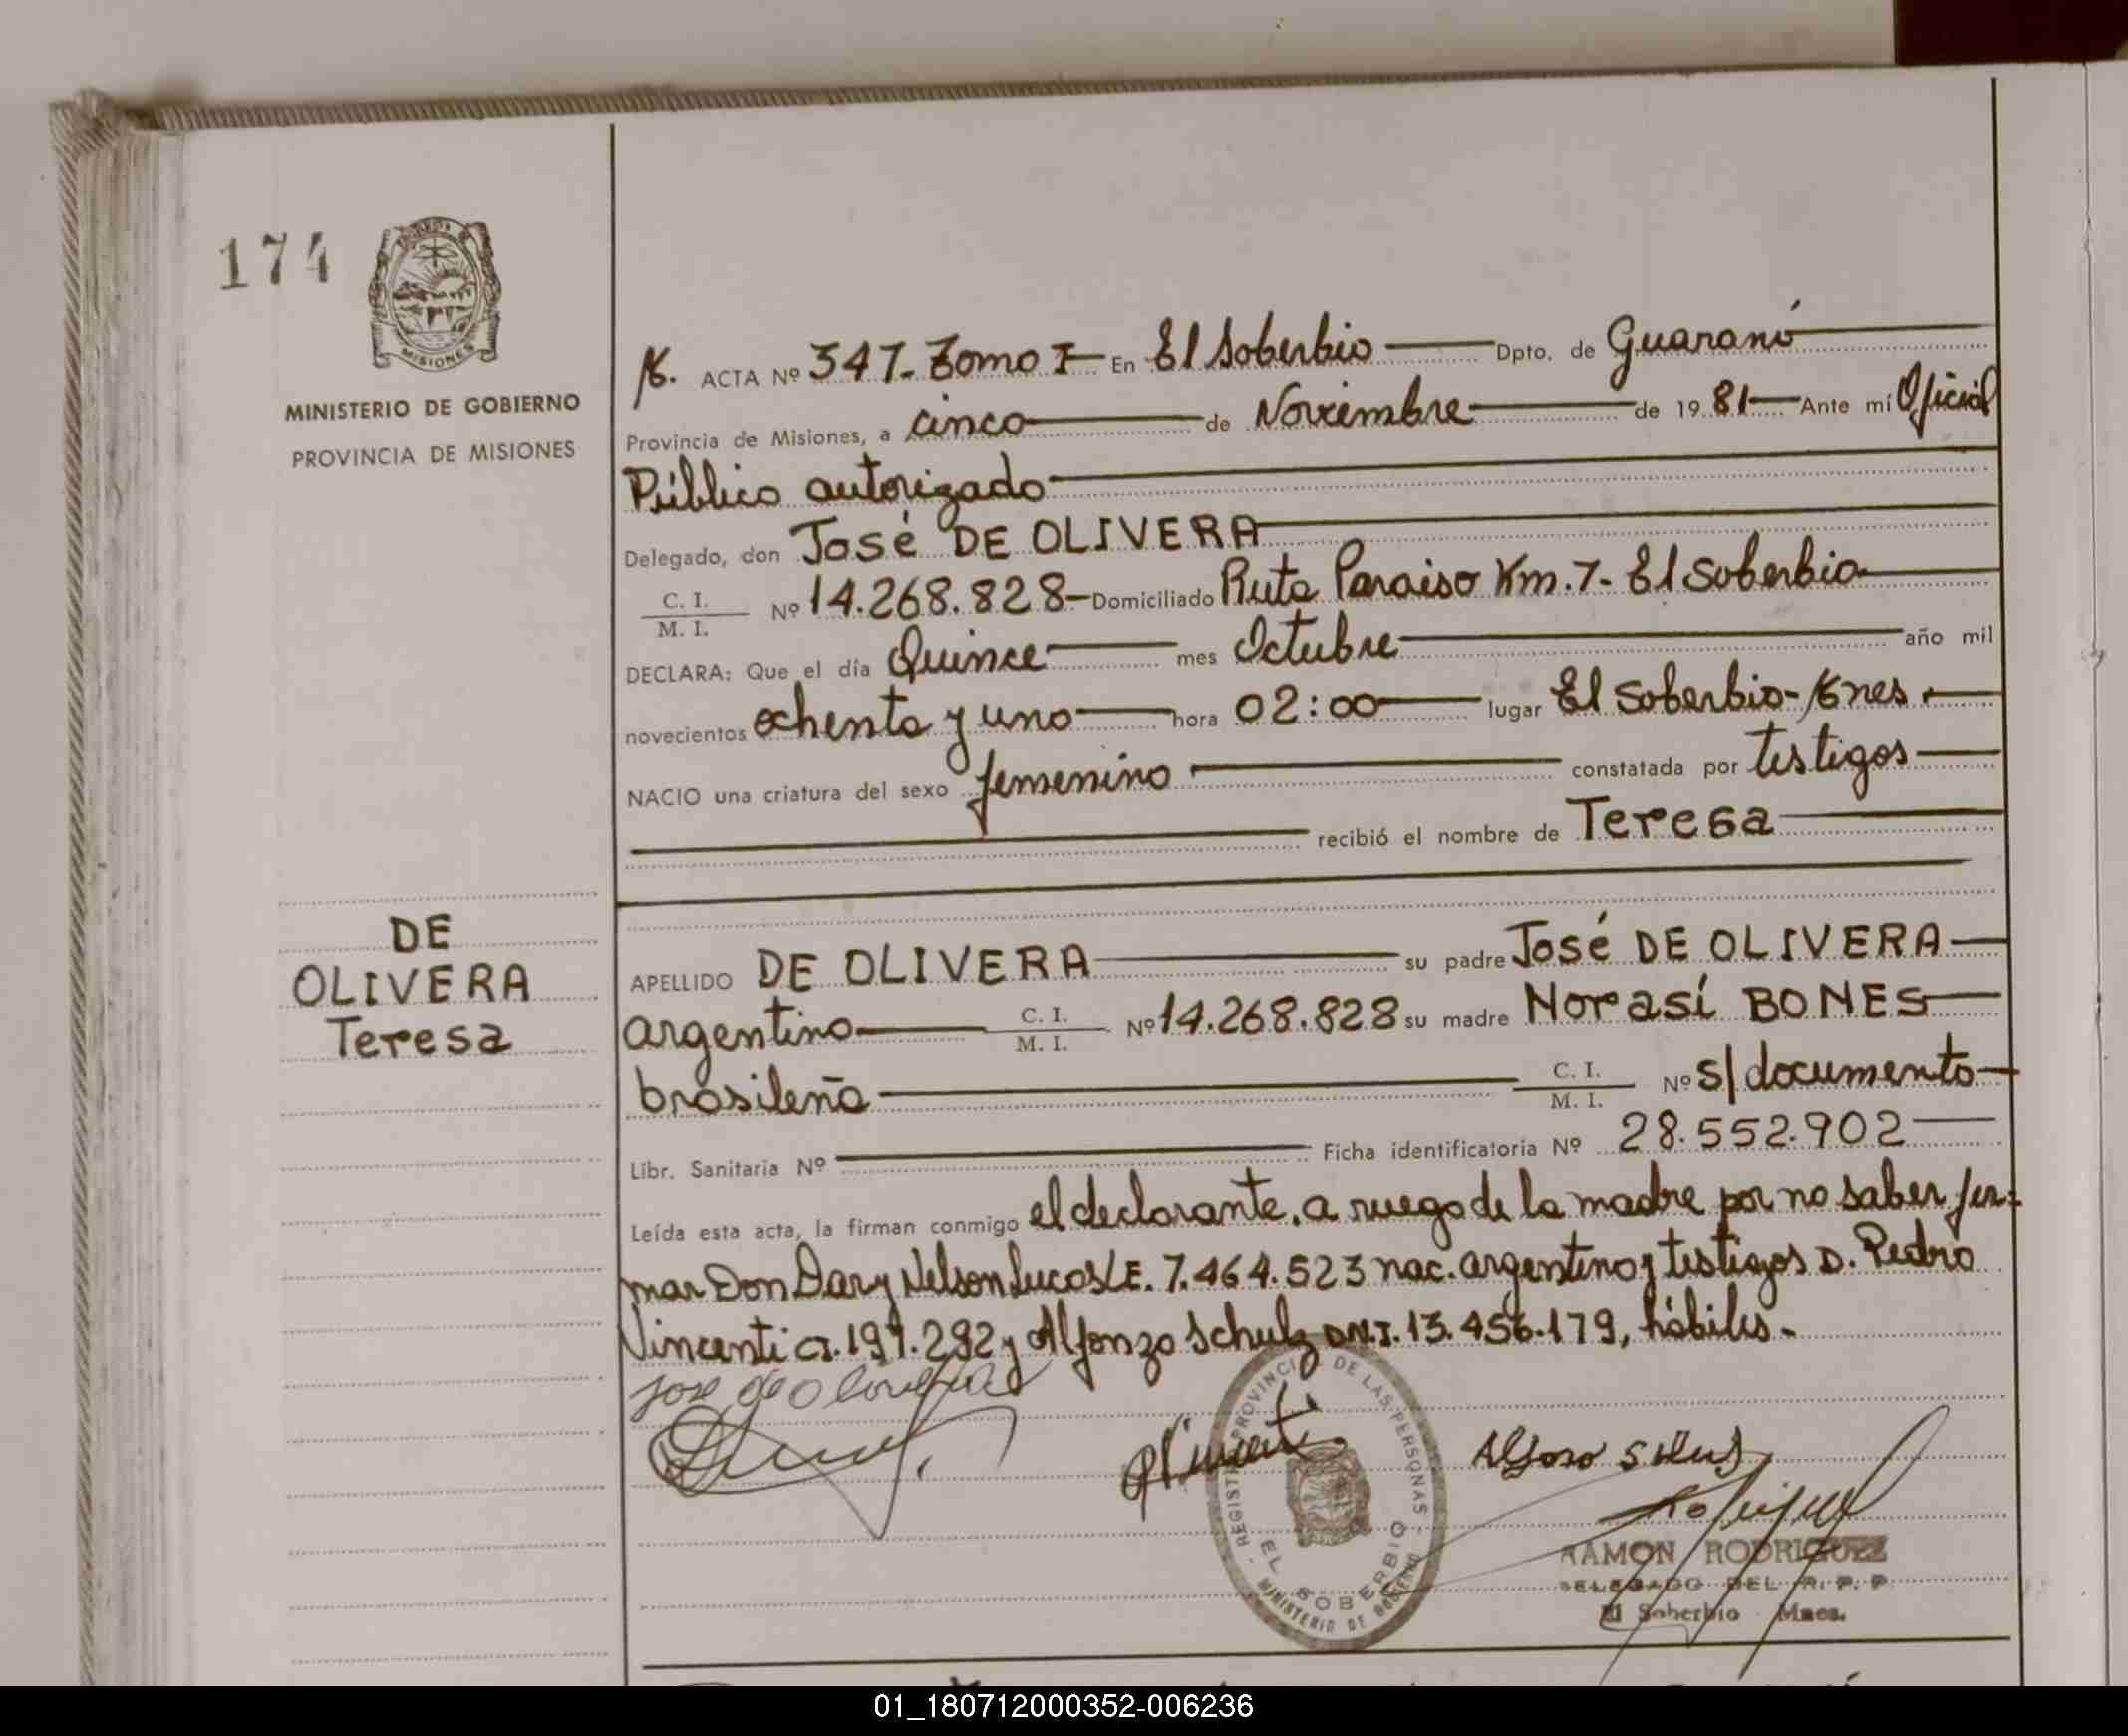 174
MISIONES
MINISTERIO DE GOBIERNO
PROVINCIA DE MISIONES
DE
OLIVERA
Teresa
ACTA Nº 347- Tomo I En El Soberbio Dpto. de Guaraní
Provincia de Misiones, a cinco de Noviembre de 19 81 Ante mí Oficial
Público autorizado
Delegado, don José DE OLIVERA
C. I. / M. I. Nº 14.268.828- Domiciliado Ruta Paraiso Km. 7- El Soberbio
DECLARA: Que el día Quince mes Octubre año mil
novecientos ochenta y uno hora 02:00 lugar El Soberbio-Mnes.
NACIO una criatura del sexo femenino constatada por testigos
recibió el nombre de Teresa
APELLIDO DE OLIVERA su padre José DE OLIVERA
argentino C. I. / M. I. Nº 14.268.828 su madre Norasí BONES
brasileña C. I. / M. I. Nº s/documento
Libr. Sanitaria Nº Ficha identificatoria Nº 28.552.902
Leída esta acta, la firman conmigo el declarante, a ruego de la madre por no saber fir-
mar Don Dary Nelson Lucas L.E. 7.464.523 nac. argentino y testigos D. Pedro
Vincenti CI. 197.292 y Alfonzo Schulz D.N.I. 13.456.179, hábiles.-
REGISTRO PROVINCIAL DE LAS PERSONAS
EL SOBERBIO
MINISTERIO DE GOBIERNO
RAMON RODRIGUEZ
DELEGADO DEL R. P. P
El Soberbio Mnes.
01_180712000352-006236